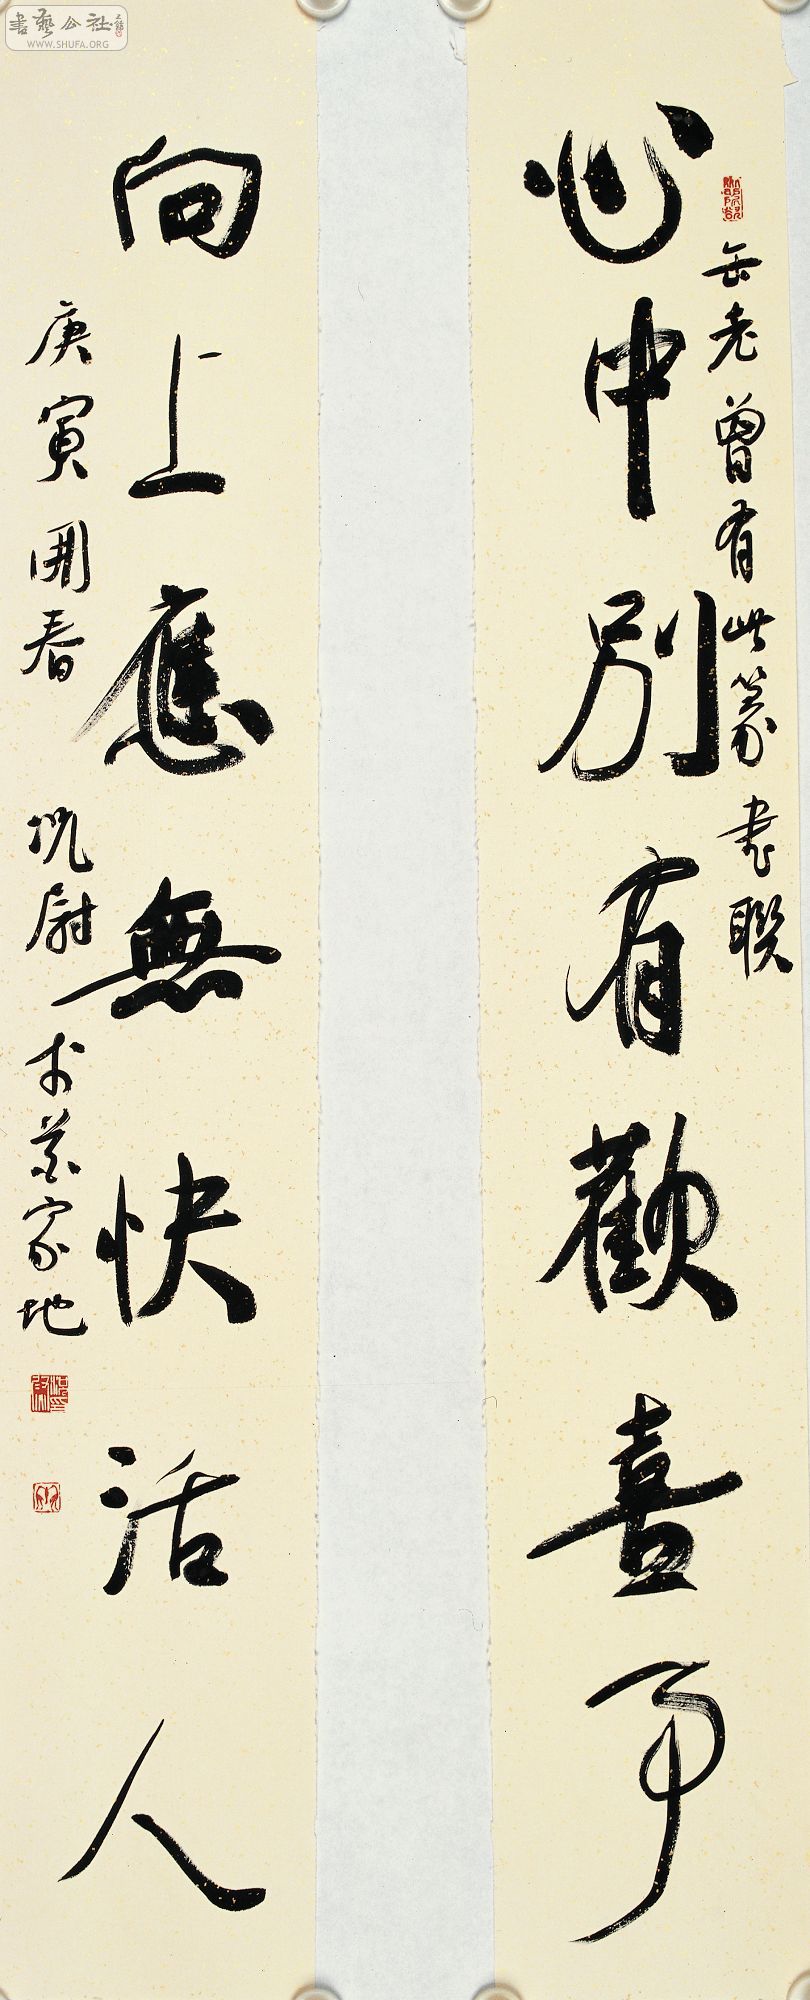 書藝公社
WWW.SHUFA.ORG
心中別有歡喜事
缶老曾有此篆書聯
向上應無快活人
庚寅開春
況尉於花家地